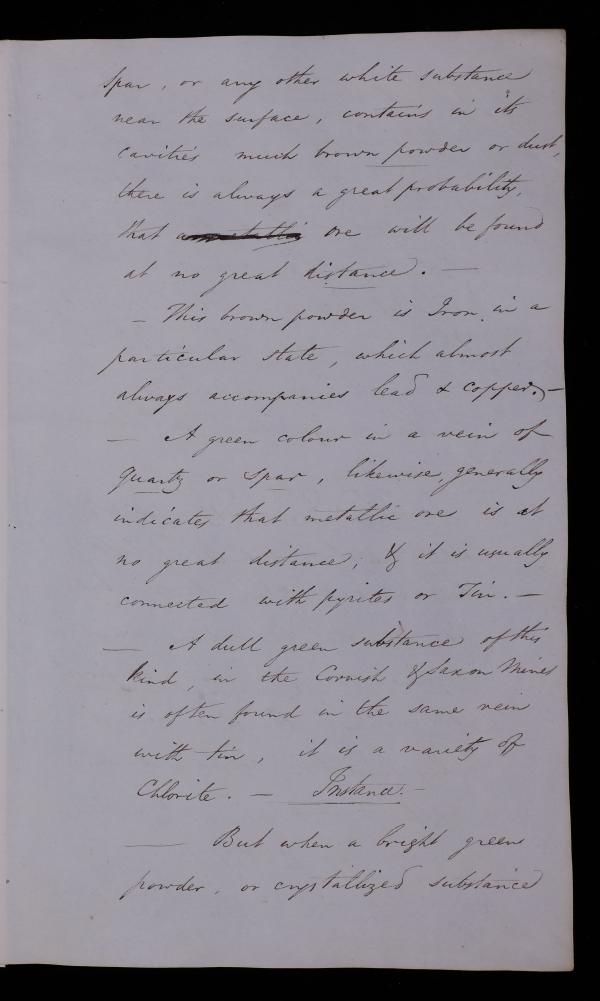 Spar, or any other white substance
near the surface, contains in its
cavities much brown powder or dust,
there is always a great probability,
that a metallic ore will be found
at no great distance. —
— This brown powder is Iron in a
particular state, which almost
always accompanies lead & copper. —
— A green colour in a vein of
quartz or spar, likewise, generally
indicates that metallic ore is at
no great distance; & it is usually
connected with pyrites or Tin. —
— A dull green substance of this
kind, in the Cornish & Saxon Mines
is often found in the same vein
with tin, it is a variety of
Chlorite. — Instance. —
— But when a bright green
powder, or crystallized substance